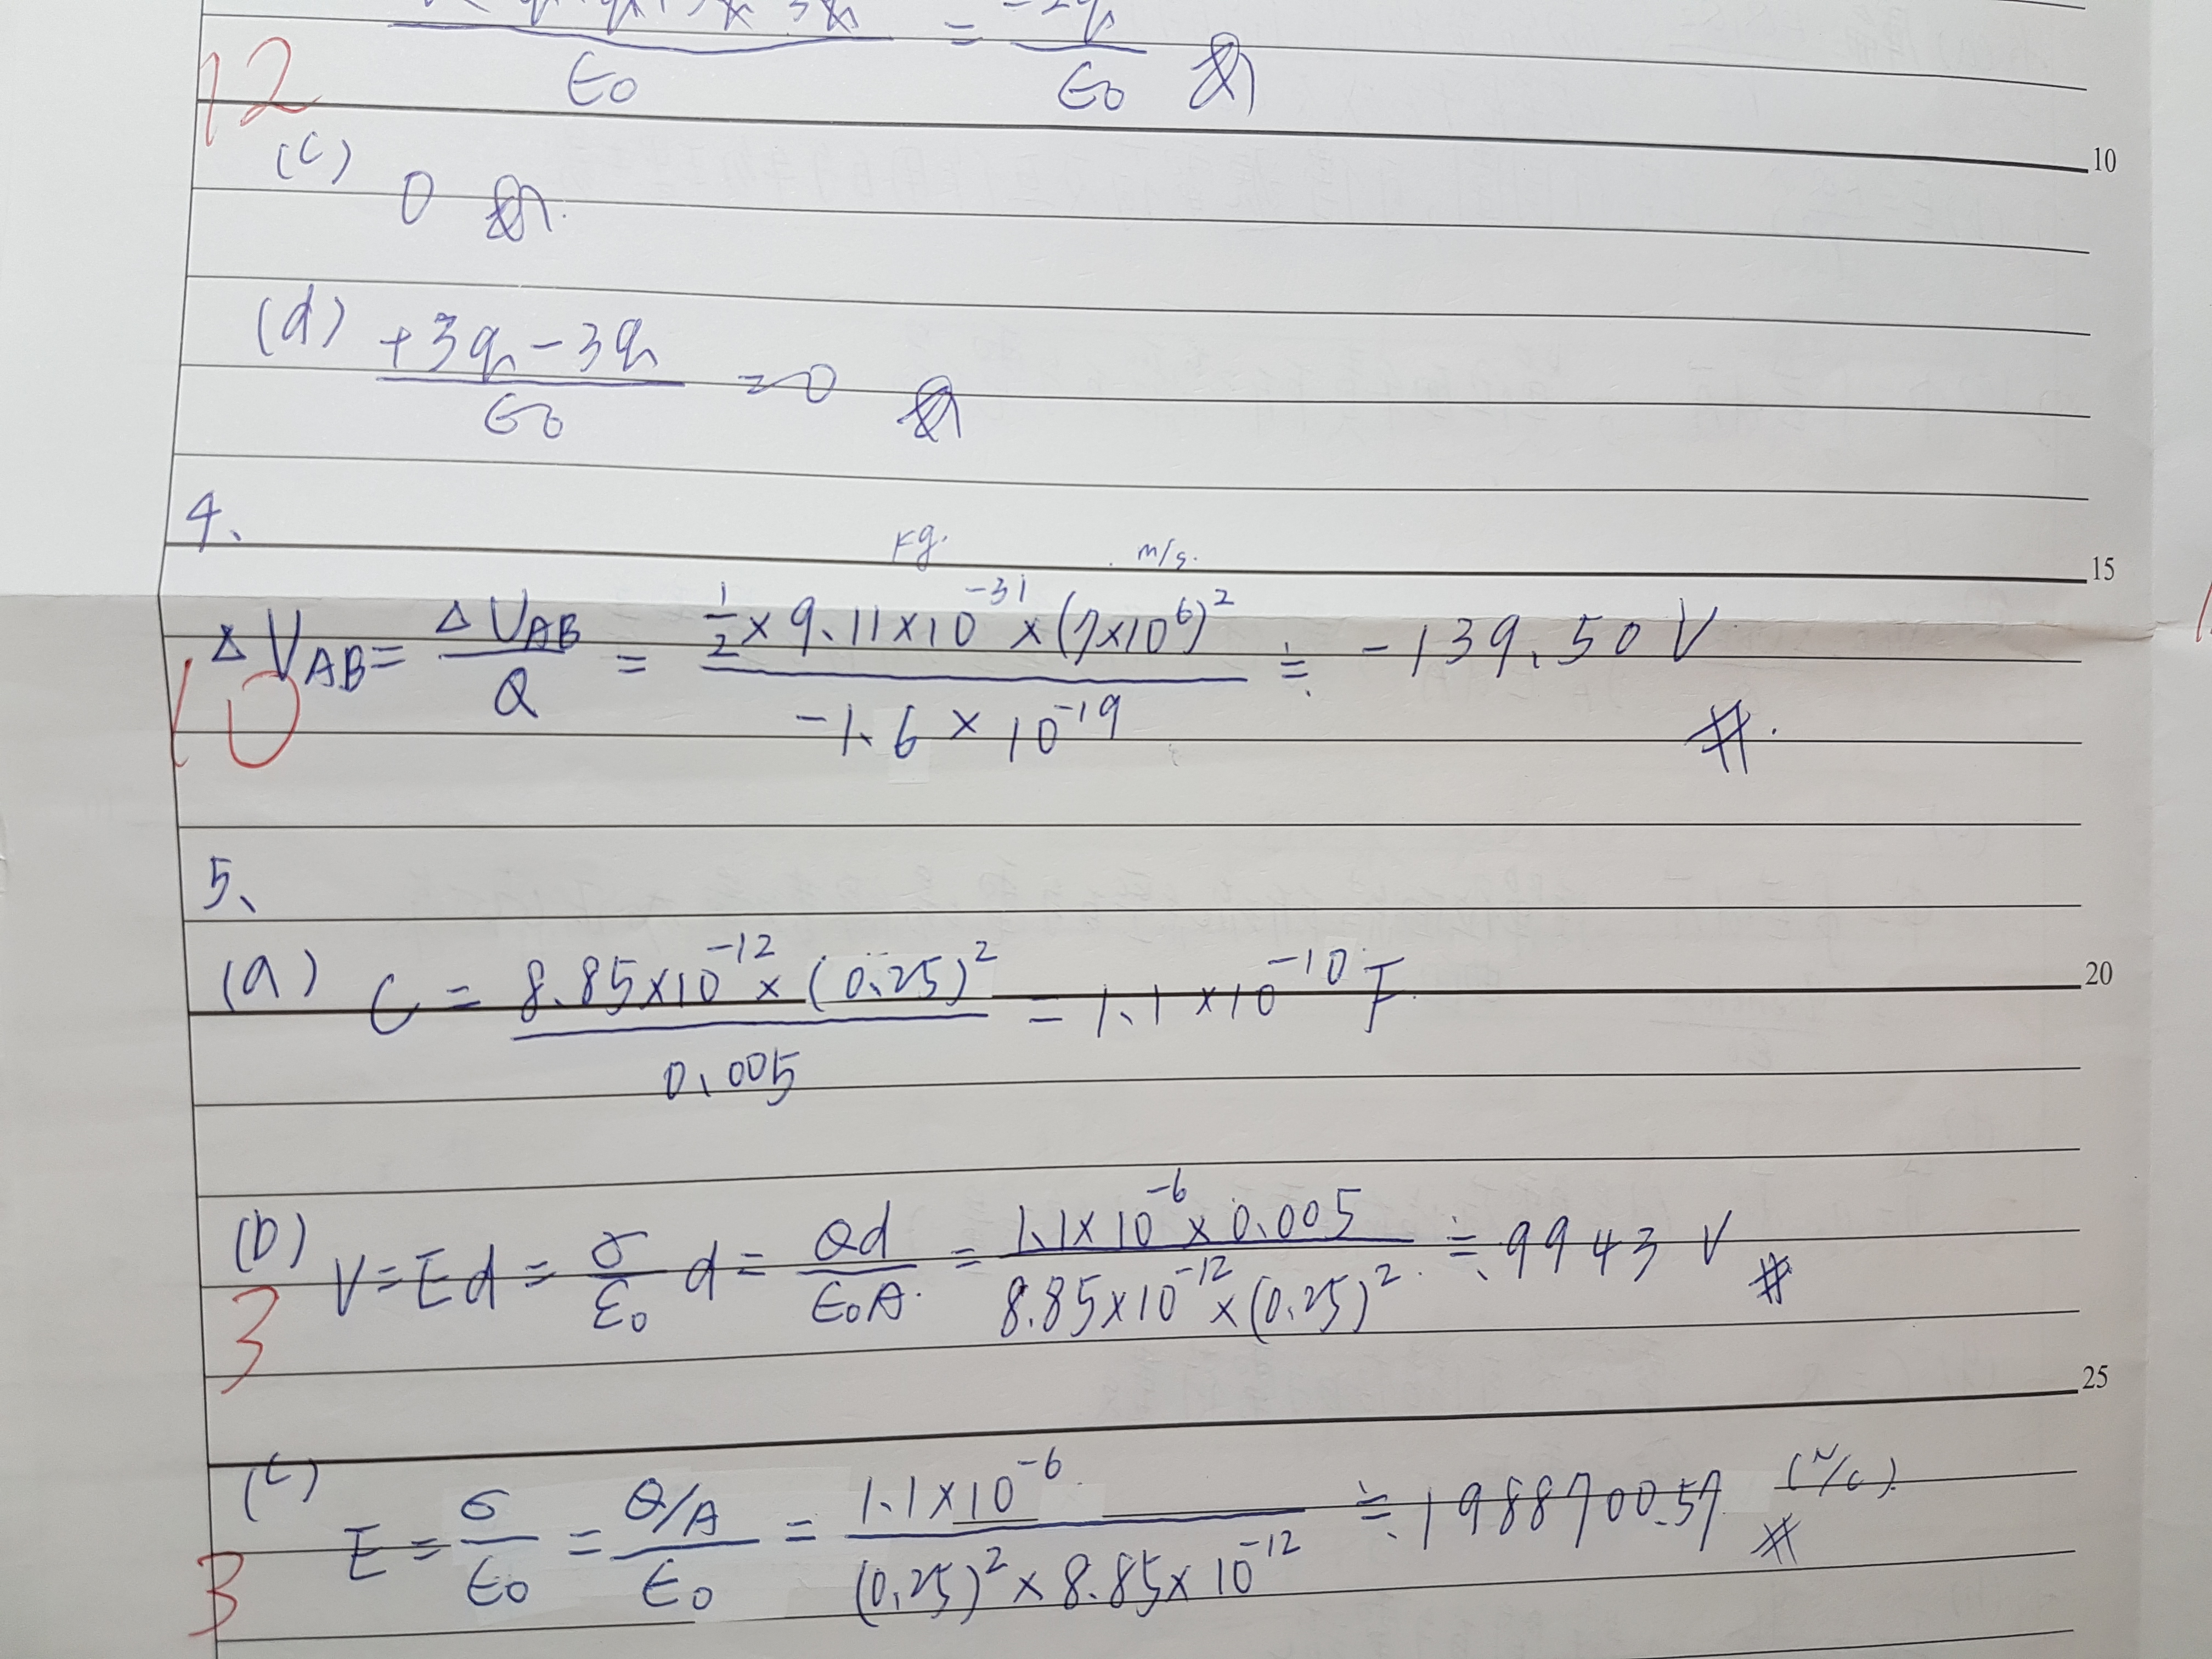 = -2q / ε0
ε0
12
10
(c) 0
(d) (+3q - 3q) / ε0 = 0
4、
kg. m/s.
15
ΔVAB = ΔUAB / Q = (1/2 × 9.11×10^-31 × (7×10^6)^2) / (-1.6 × 10^-19) ≒ -139.50 V #
10
5、
(a) C = (8.85×10^-12 × (0.25)^2) / 0.005 = 1.1 ×10^-10 F
20
(b) V = Ed = σ/ε0 d = Qd / ε0A = (1.1×10^-6 × 0.005) / (8.85×10^-12 × (0.25)^2) ≒ 9943 V #
3
25
(c) E = σ/ε0 = (Q/A) / ε0 = 1.1×10^-6 / ((0.25)^2 × 8.85×10^-12) ≒ 1988700.57 (N/C) #
3